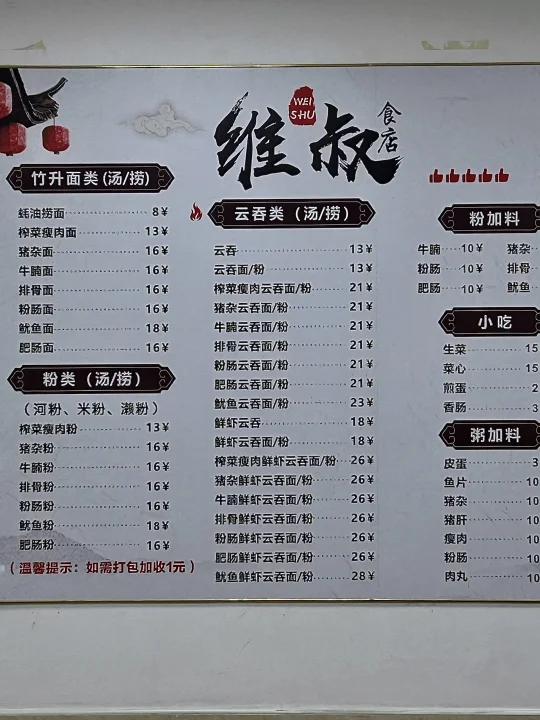 维叔
WEI
SHU
食店
竹升面类(汤/捞)
蚝油捞面 8¥
榨菜瘦肉面 13¥
猪杂面 16¥
牛腩面 16¥
排骨面 16¥
粉肠面 16¥
鱿鱼面 18¥
肥肠面 16¥
粉类（汤/捞）
（河粉、米粉、濑粉）
榨菜瘦肉粉 13¥
猪杂粉 16¥
牛腩粉 16¥
排骨粉 16¥
粉肠粉 16¥
鱿鱼粉 18¥
肥肠粉 16¥
（温馨提示：如需打包加收1元）
云吞类（汤/捞）
云吞 13¥
云吞面/粉 13¥
榨菜瘦肉云吞面/粉 21¥
猪杂云吞面/粉 21¥
牛腩云吞面/粉 21¥
排骨云吞面/粉 21¥
粉肠云吞面/粉 21¥
肥肠云吞面/粉 21¥
鱿鱼云吞面/粉 23¥
鲜虾云吞 18¥
鲜虾云吞面/粉 18¥
榨菜瘦肉鲜虾云吞面/粉 26¥
猪杂鲜虾云吞面/粉 26¥
牛腩鲜虾云吞面/粉 26¥
排骨鲜虾云吞面/粉 26¥
粉肠鲜虾云吞面/粉 26¥
肥肠鲜虾云吞面/粉 26¥
鱿鱼鲜虾云吞面/粉 28¥
粉加料
牛腩 10¥ 猪杂
粉肠 10¥ 排骨
肥肠 10¥ 鱿鱼
小吃
生菜 15
菜心 15
煎蛋 2
香肠 3
粥加料
皮蛋 3
鱼片 10
猪杂 10
猪肝 10
瘦肉 10
粉肠 10
肉丸 10